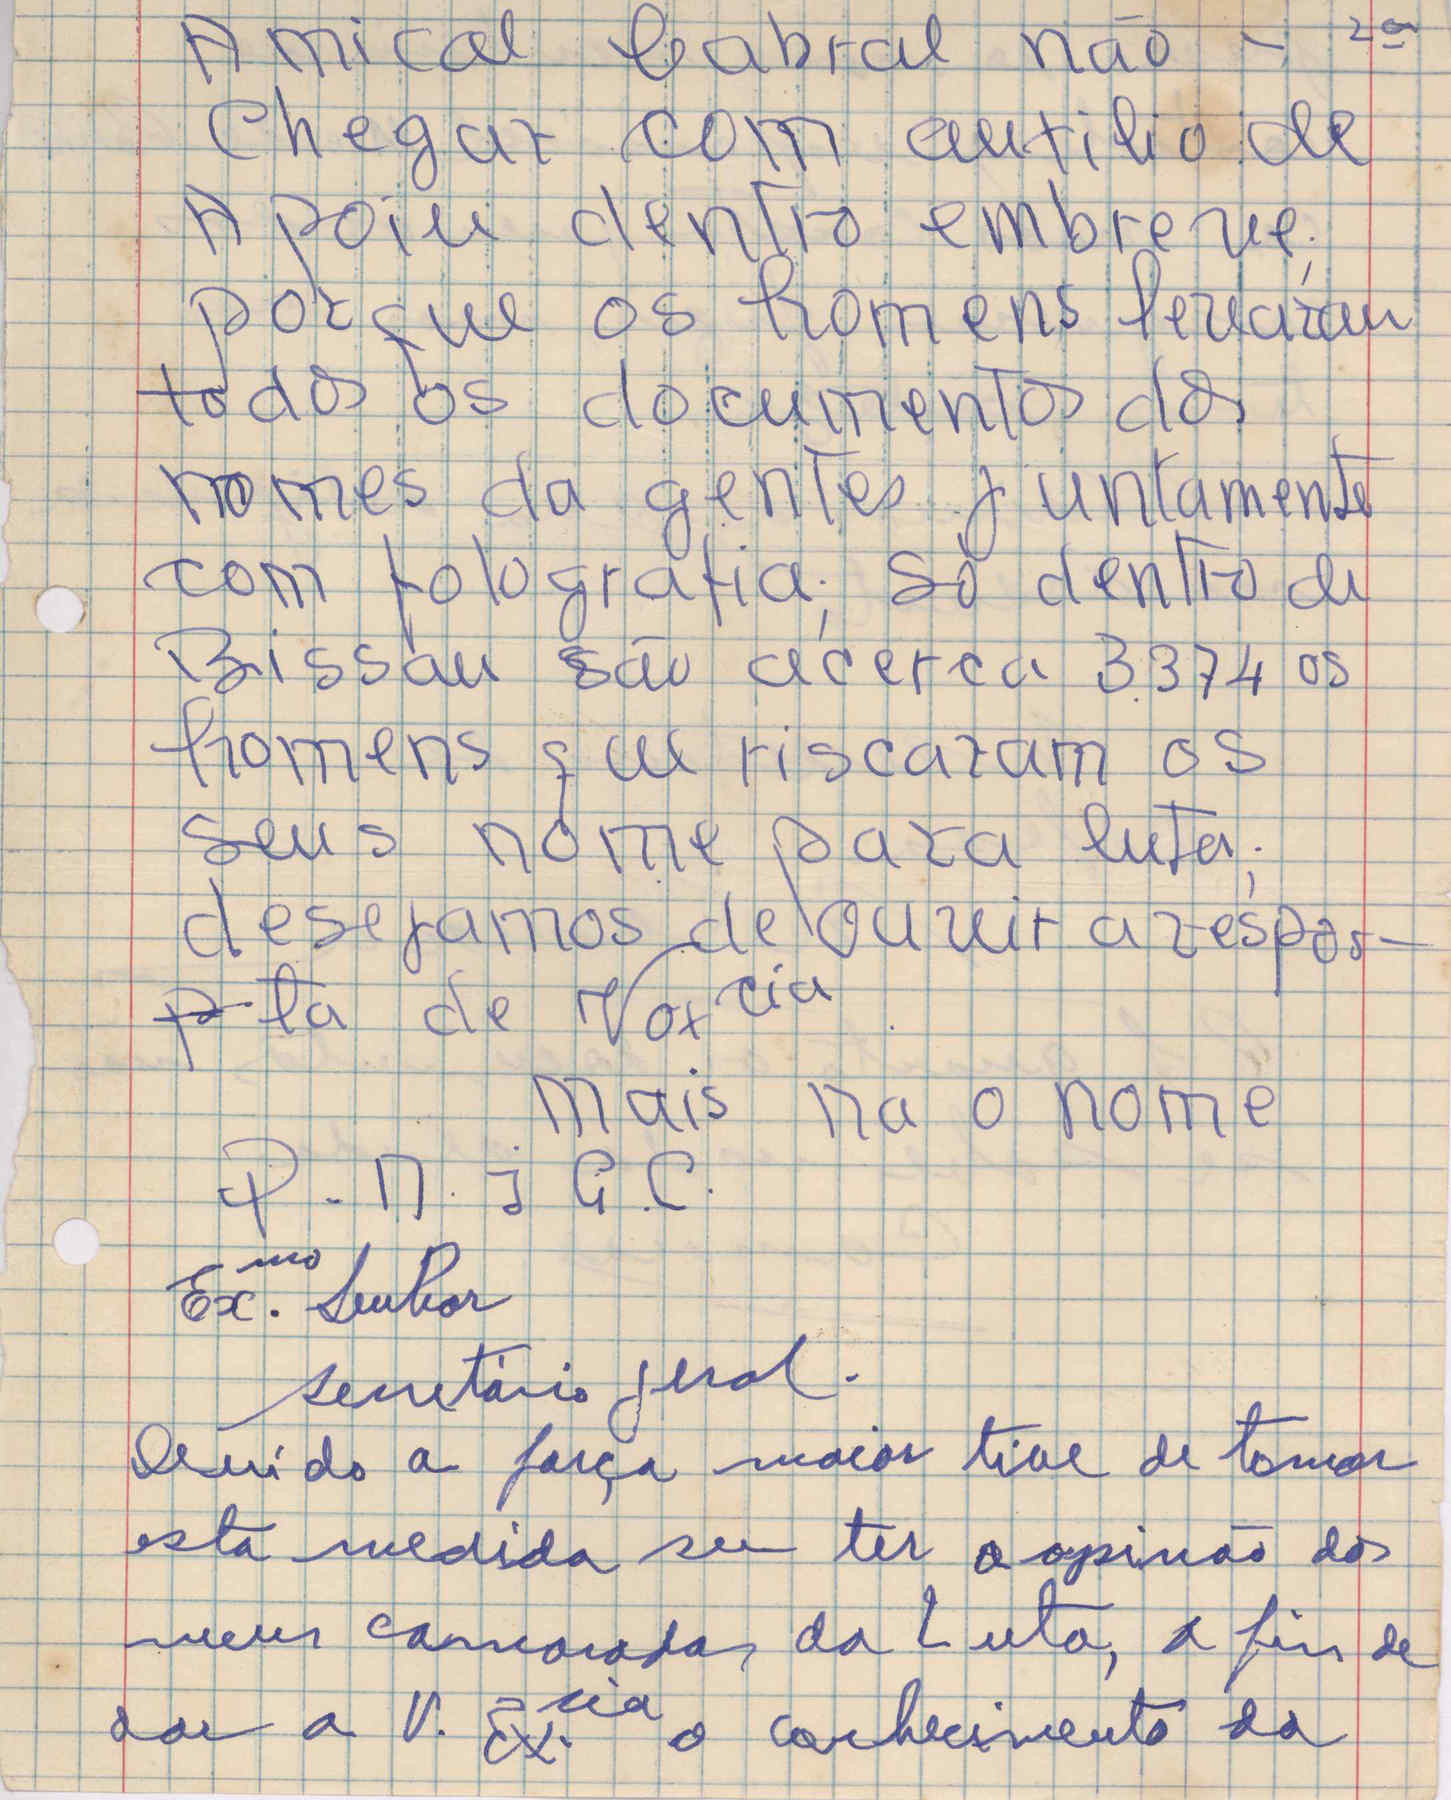 Amical Cabral não - 2ª
Chegar com auxilio de
Apoiu dentro embreve;
porque os homens levaram
todos os documentos dos
nomes da gentes juntamente
com fotografia; só dentro de
Bissau são acerca 3.374 os
homens que riscaram os
seus nome para luta;
desejamos de ouvir a respos-
ta de Vox cia
mais na o nome
P. n. j G. C.
Ex.mo Senhor
secretário geral.
Devido a força maior tive de tomar
esta medida sem ter a opinião dos
meus camaradas da Luta, a fim de
dar a V. Ex.cia o conhecimento da